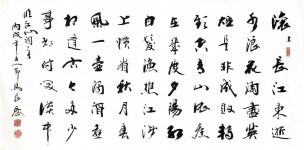 滚〻長江東逝
水浪花淘盡英
雄是非成敗轉
頭空青山依舊
在幾度夕陽紅
白髮漁樵江渚
上慣看秋月春
風一壺濁酒喜
相逢古今多少
事都付笑談中
臨江仙
丙戌年